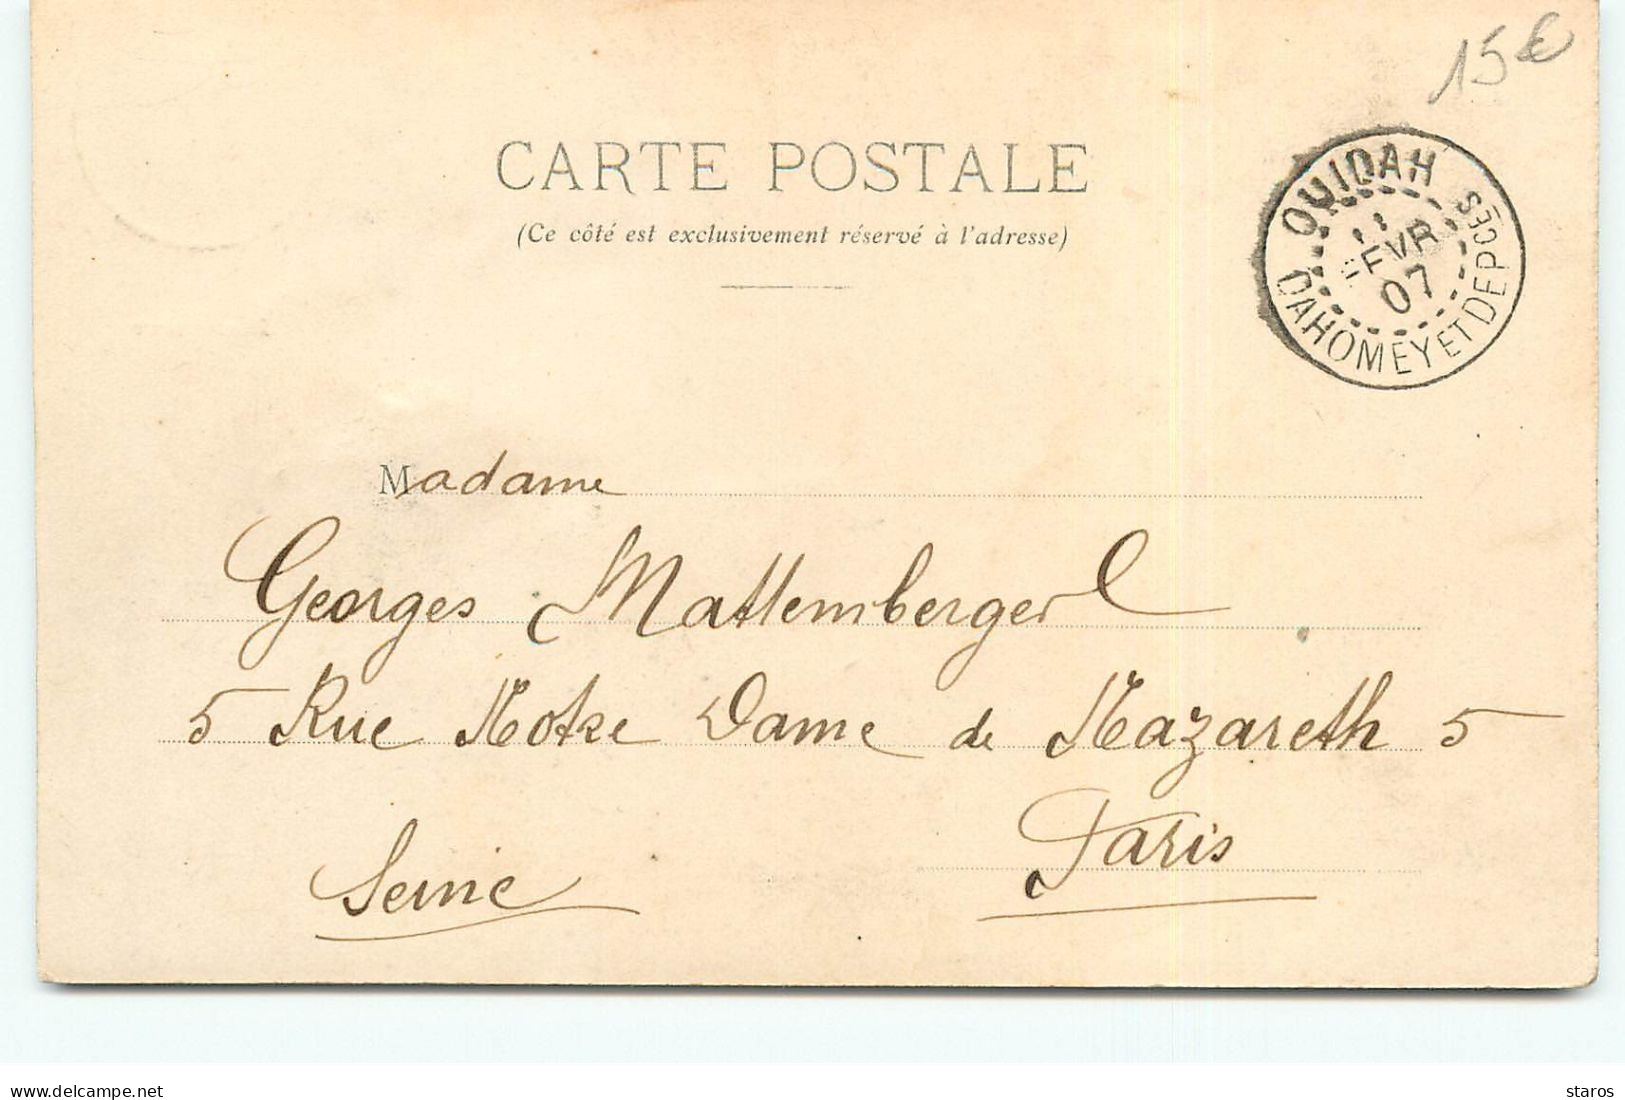 15€
CARTE POSTALE
(Ce côté est exclusivement réservé à l'adresse)
OUIDAH
11
FEVR
07
DAHOMEY ET DEPCES
Madame
Georges Mattemberger
5 Rue Notre Dame de Nazareth 5
Paris
Seine
www.delcampe.net
staros